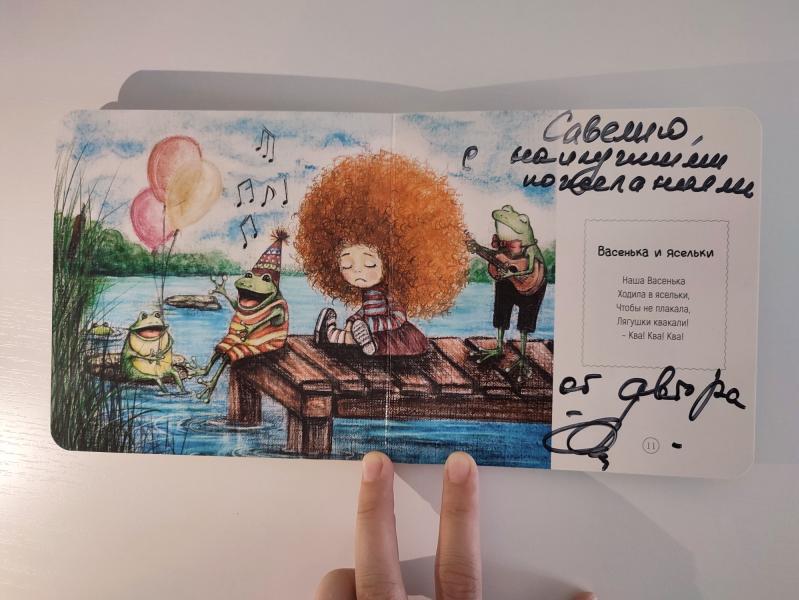 Савелию,
с наилучшими
пожеланиями
Васенька и ясельки
Наша Васенька
Ходила в ясельки,
Чтобы не плакала,
Лягушки квакали!
- Ква! Ква! Ква!
от автора
11